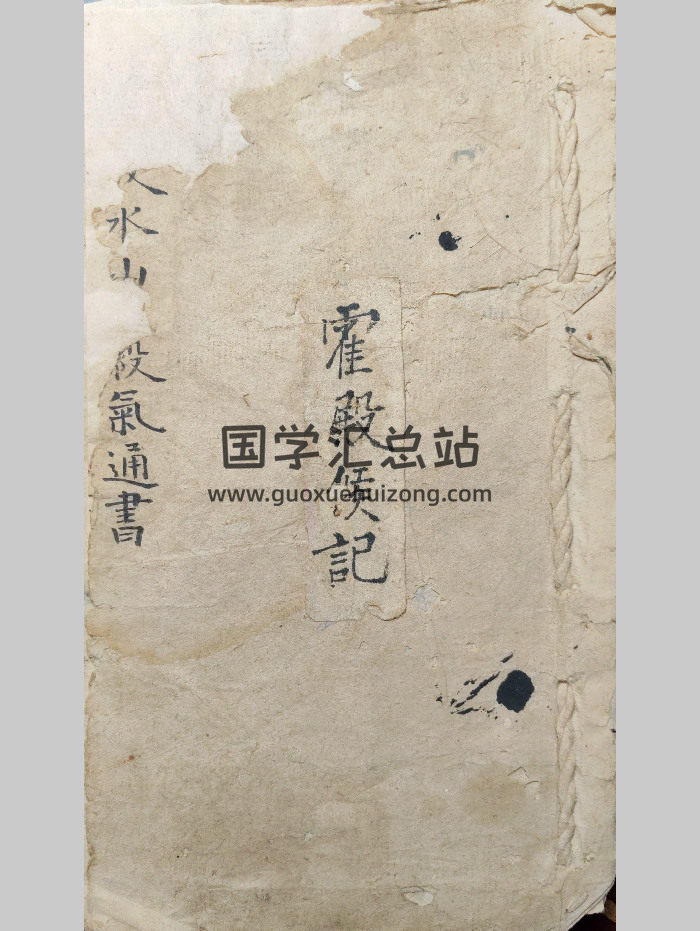 霍殿侯記
水山 段氣通書
国学汇总站
www.guoxuehuizong.com